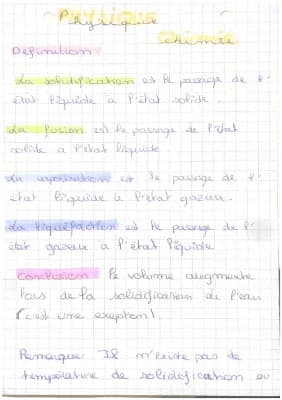 Physique
chimie
Definition
La solidification est le passage de l'
état liquide a l'état solide.
La fusion est le passage de l'état
solide à l'état liquide
La vaporisation est le passage de l'
etat liquide a l'etat gazeux.
La liquéfaction est le passage de l'
etat gazeux a l'état liquide
Conclusion le volume augmente
lors de la solidification de l'eau
(c'est une exeption).
Remarque Il n'existe pas de
température de solidification ou